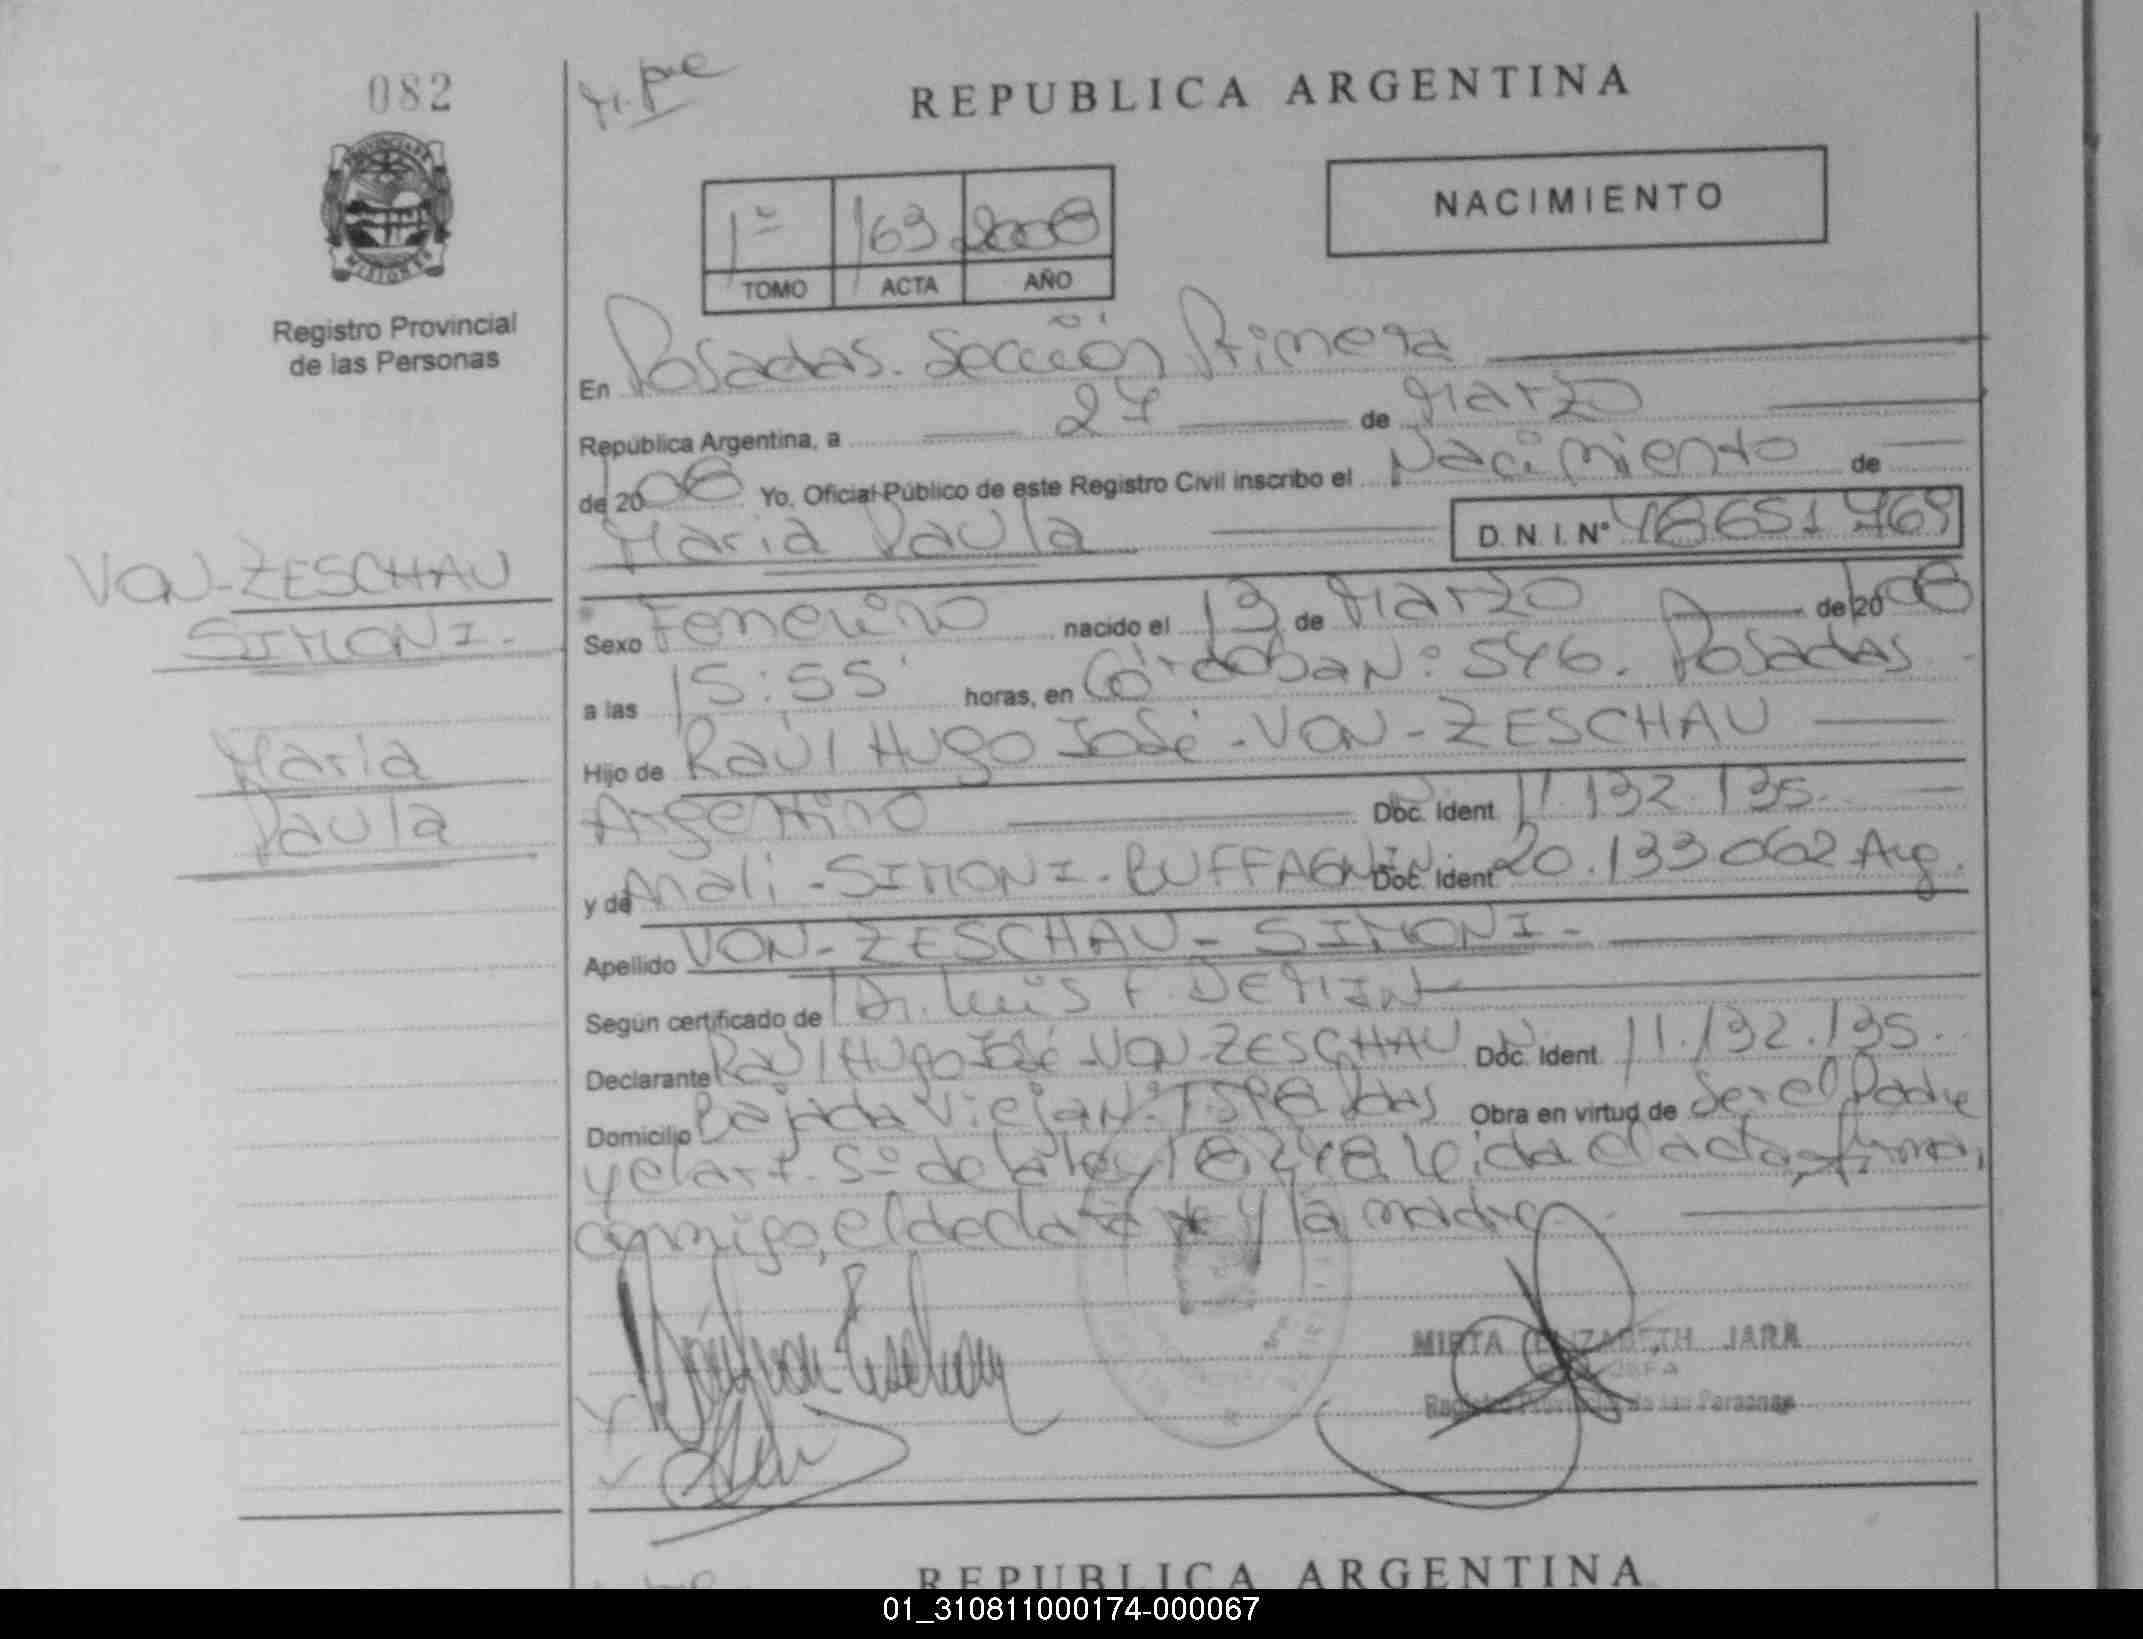 082
REPUBLICA ARGENTINA
NACIMIENTO
1º 163 2008
TOMO ACTA AÑO
Registro Provincial
de las Personas
En Posadas. Sección Primera
República Argentina, a 27 de Marzo
de 2008 Yo, Oficial Público de este Registro Civil inscribo el Nacimiento de
Maria Paula D.N.I. Nº 48651769
VON-ZESCHAU
SIMONI.-
Maria
Paula
Sexo Femenino nacido el 13 de Marzo de 2008
a las 15:55' horas, en Córdoba Nº 546. Posadas
Hijo de Raúl Hugo José - VON - ZESCHAU
Argentino Doc. Ident. 11.132.135.
y de Anali - SIMONI - BUFFAGNIN Doc. Ident. 20.133062 Arg.
Apellido VON - ZESCHAU - SIMONI -
Según certificado de Dr. Luis F. DEMIN
Declarante Raúl Hugo José - VON ZESCHAU Doc. Ident. 11.132.135.
Domicilio Bajada Vieja Nº Pdas Obra en virtud de Ser el Padre
y el art. 5º de la ley 18248 leída el acta, firma,
conmigo, el declarante y la madre
MIRTA ELIZABETH JARA
JEFA
Registro Provincial de las Personas
REPUBLICA ARGENTINA
01_310811000174-000067